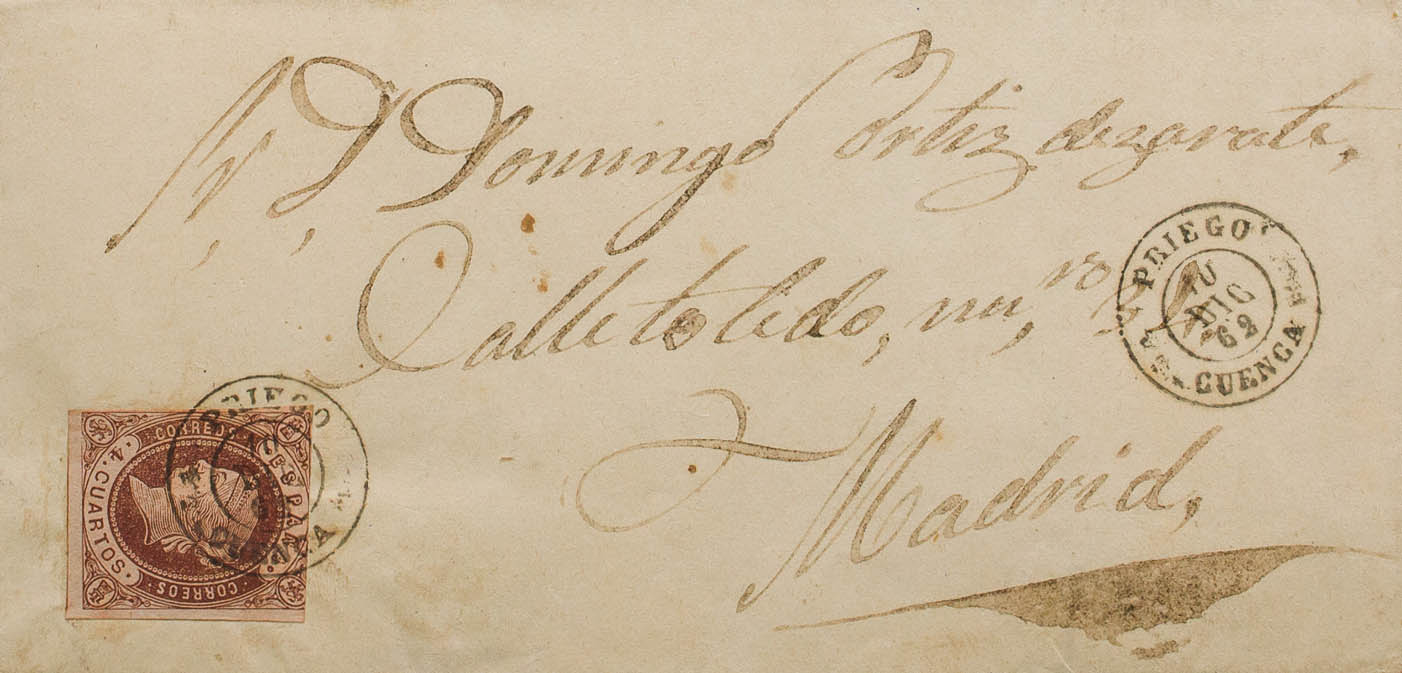 Sr, D, Domingo Ortiz dezarate,
Calle toledo, nu,ro
Madrid,
PRIEGO
10
DIC
62
CUENCA
PRIEGO
CUENCA
CORREOS
ESPAÑA
4. CUARTOS.
CORREOS